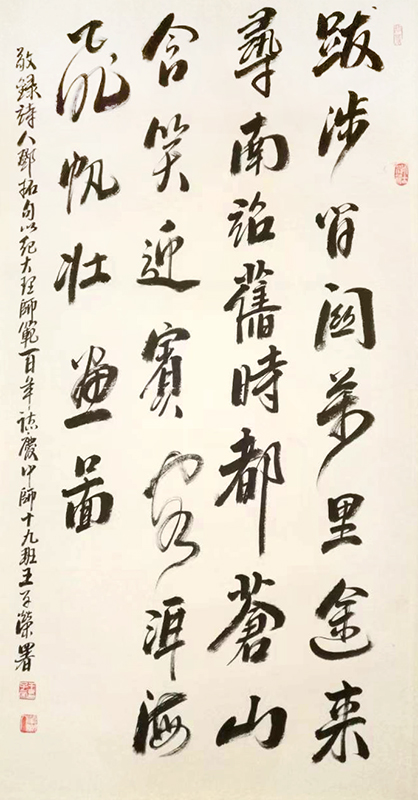 跋涉間關萬里途来
尋南詔舊時都蒼山
含笑迎賓客洱海
飛帆壯畫圖
敬録詩人鄧拓句以紀大理師範百年誌慶中師十九班王子署